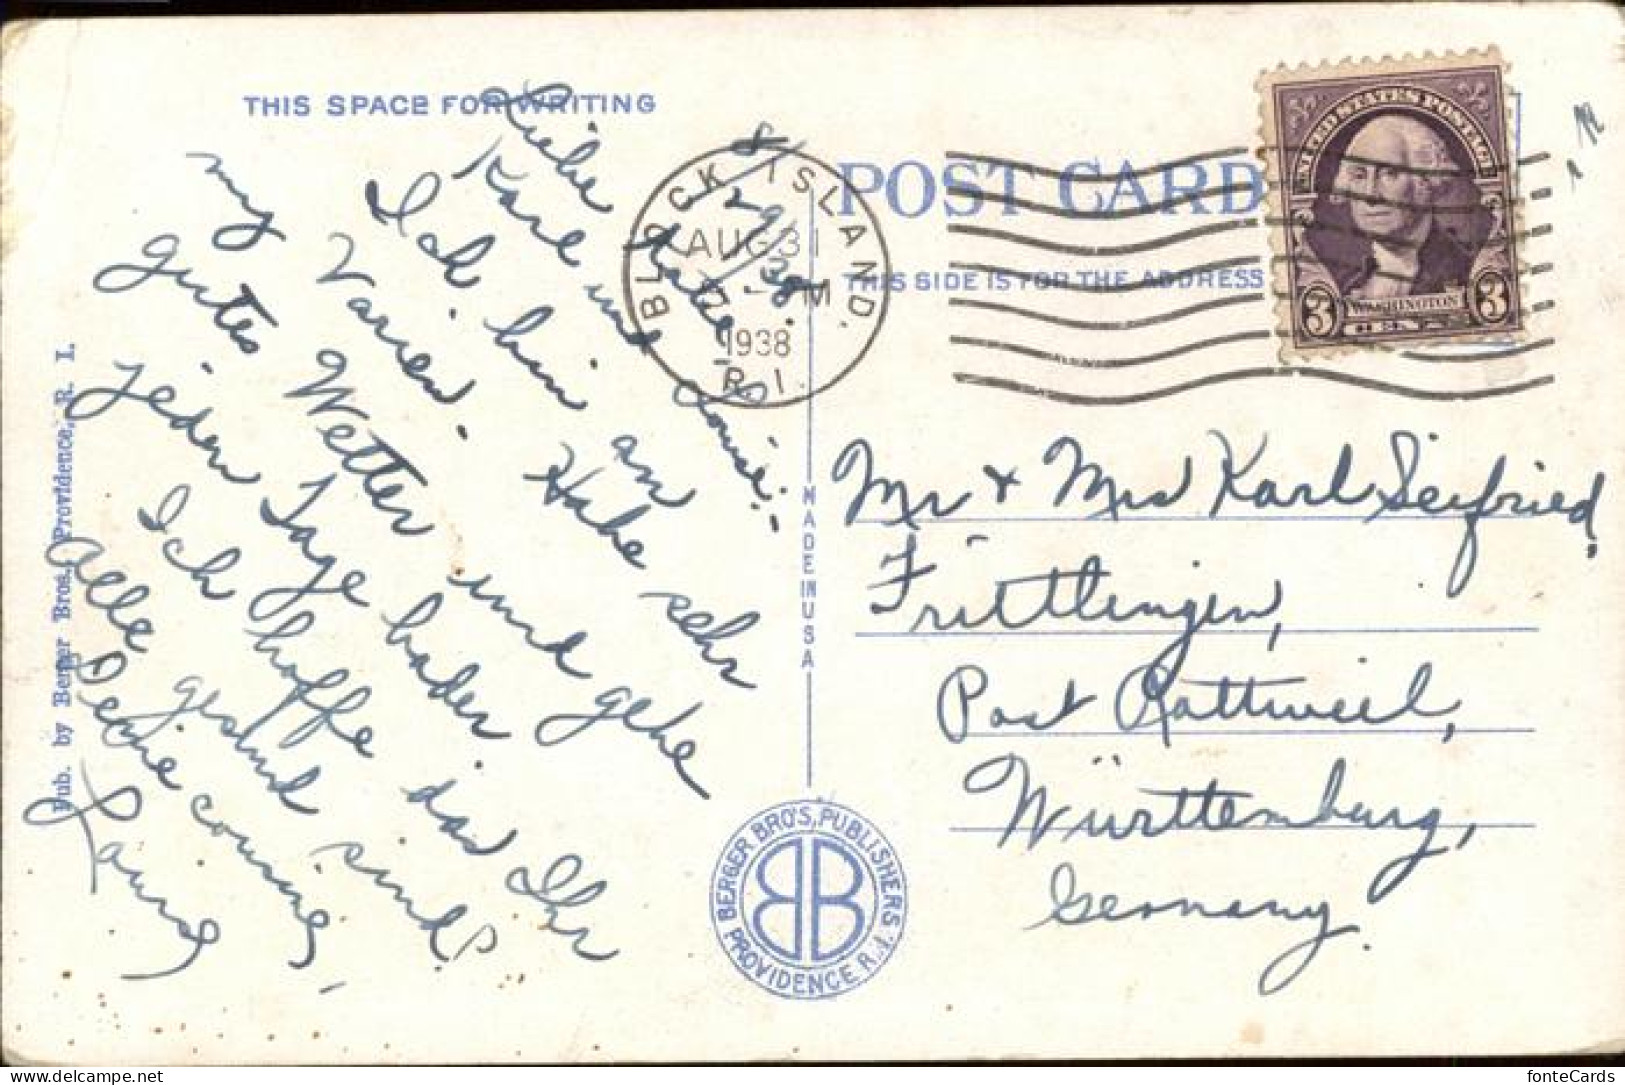 THIS SPACE FOR WRITING
8/29/38
Liebe
Karl und Louise:-
Ich bin an
my Varien. Habe sehr
gutes Wetter und gehe
jeden Tage baden.
Ich hoffe das Ihr
alle gesund sind?
Deine cousine,
Laura
Pub. by Berger Bros., Providence, R. I.
MADE IN USA
BERGER BRO'S, PUBLISHERS
PROVIDENCE R.I.
BB
BLOCK ISLAND.
AUG 31
M
1938
R.I.
POST CARD
THIS SIDE IS FOR THE ADDRESS
UNITED STATES POSTAGE
WASHINGTON
3 3
Mr & Mrs Karl Seifried,
Frittlingen,
Post Rottweil,
Württemburg,
Germany.
fonteCards